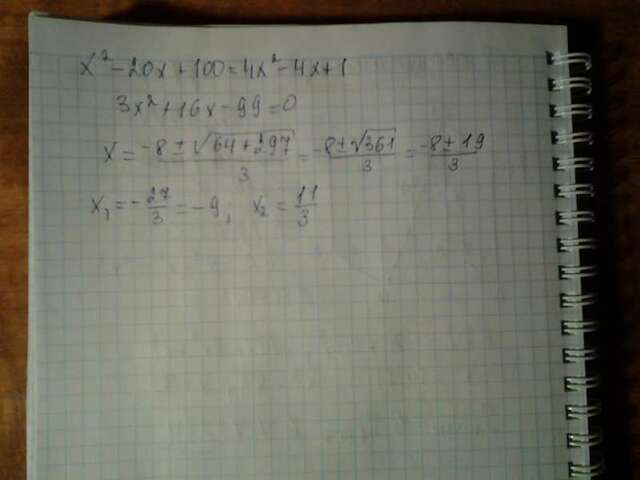 x² - 20x + 100 = 4x² - 4x + 1
3x² + 16x - 99 = 0
x = (-8 ± √(64 + 297))/3 = (-8 ± √361)/3 = (-8 ± 19)/3
x₁ = -27/3 = -9; x₂ = 11/3